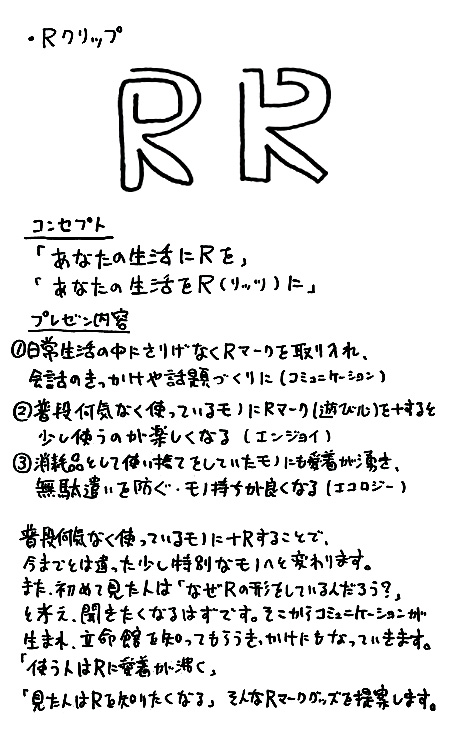 ・Rクリップ
コンセプト
「あなたの生活にRを」
「あなたの生活をR(リッツ)に」
プレゼン内容
①日常生活の中にさりげなくRマークを取り入れ、
会話のきっかけや話題づくりに(コミュニケーション)
②普段何気なく使っているモノにRマーク(遊び心)を+すると
少し使うのが楽しくなる(エンジョイ)
③消耗品として使い捨てをしていたモノにも愛着が湧き、
無駄遣いを防ぐ・モノ持ちが良くなる(エコロジー)
普段何気なく使っているモノに+Rすることで、
今までとは違った少し特別なモノへと変わります。
また、初めて見た人は「なぜRの形をしているんだろう?」
と考え、聞きたくなるはずです。そこからコミュニケーションが
生まれ、立命館を知ってもらうきっかけにもなっていきます。
「使う人はRに愛着が沸く」
「見た人はRを知りたくなる」そんなRマークグッズを提案します。